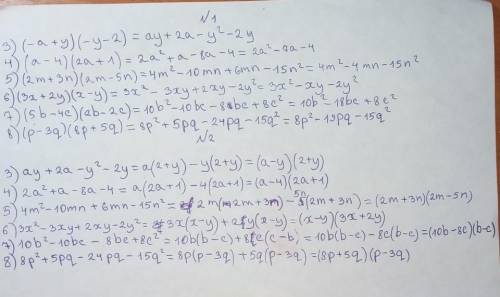 N1
3) (-a+y)(-y-2) = ay+2a-y²-2y
4) (a-4)(2a+1) = 2a²+a-8a-4=2a²-7a-4
5) (2m+3n)(2m-5n)=4m²-10mn+6mn-15n²=4m²-4mn-15n²
6) (3x+2y)(x-y)=3x²-3xy+2xy-2y²=3x²-xy-2y²
7) (5b-4c)(2b-2c)=10b²-10bc-8bc+8c²=10b²-18bc+8c²
8) (p-3q)(8p+5q)=8p²+5pq-24pq-15q²=8p²-19pq-15q²
N2
3) ay+2a-y²-2y=a(2+y)-y(2+y)=(a-y)(2+y)
4) 2a²+a-8a-4=a(2a+1)-4(2a+1)=(a-4)(2a+1)
5) 4m²-10mn+6mn-15n²=2m(2m+3n)-5n(2m+3n)=(2m+3n)(2m-5n)
6) 3x²-3xy+2xy-2y²=3x(x-y)+2y(x-y)=(x-y)(3x+2y)
7) 10b²-10bc-8bc+8c²=10b(b-c)+8c(c-b)=10b(b-c)-8c(b-c)=(10b-8c)(b-c)
8) 8p²+5pq-24pq-15q²=8p(p-3q)+5q(p-3q)=(8p+5q)(p-3q)